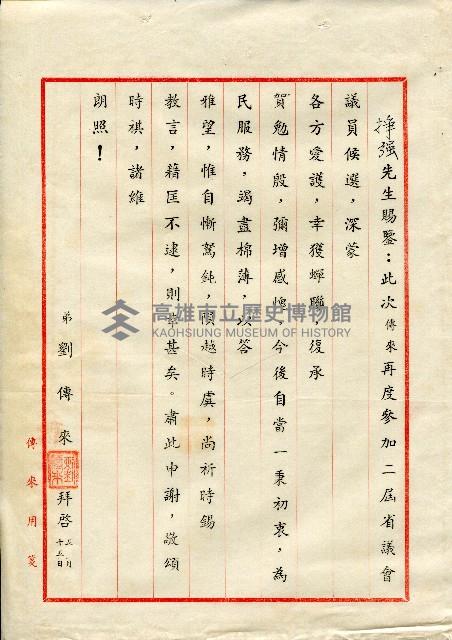 掙强先生賜鑒：此次傳來再度參加二屆省議會
議員候選，深蒙
各方愛護，幸獲蟬聯，復承
賀勉情殷，彌增感愧，今後自當一秉初衷，為
民服務，竭盡棉薄，以答
雅望，惟自慚駑鈍，隕越時虞，尚祈時錫
教言，藉匡不逮，則幸甚矣。肅此申謝，敬頌
時祺，諸維
朗照！
弟劉傳來拜啓
五月
十五日
傳來用箋
高雄市立歷史博物館
KAOHSIUNG MUSEUM OF HISTORY